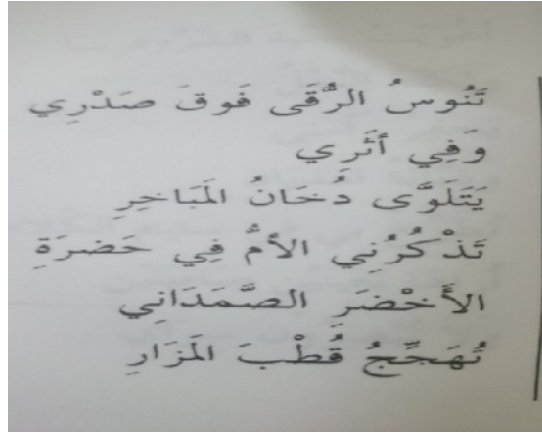 تَنُوسُ الرُّقَى فَوقَ صَدْرِي
وَفِي أثَرِي
يَتَلَوَّى دُخَانُ المَبَاخِرِ
تَذْكُرُنِي الأمُّ فِي حَضرَةِ
الأَخْضَرِ الصَّمَدَانِي
تُهَجِّجُ قُطْبَ المَزَارِ